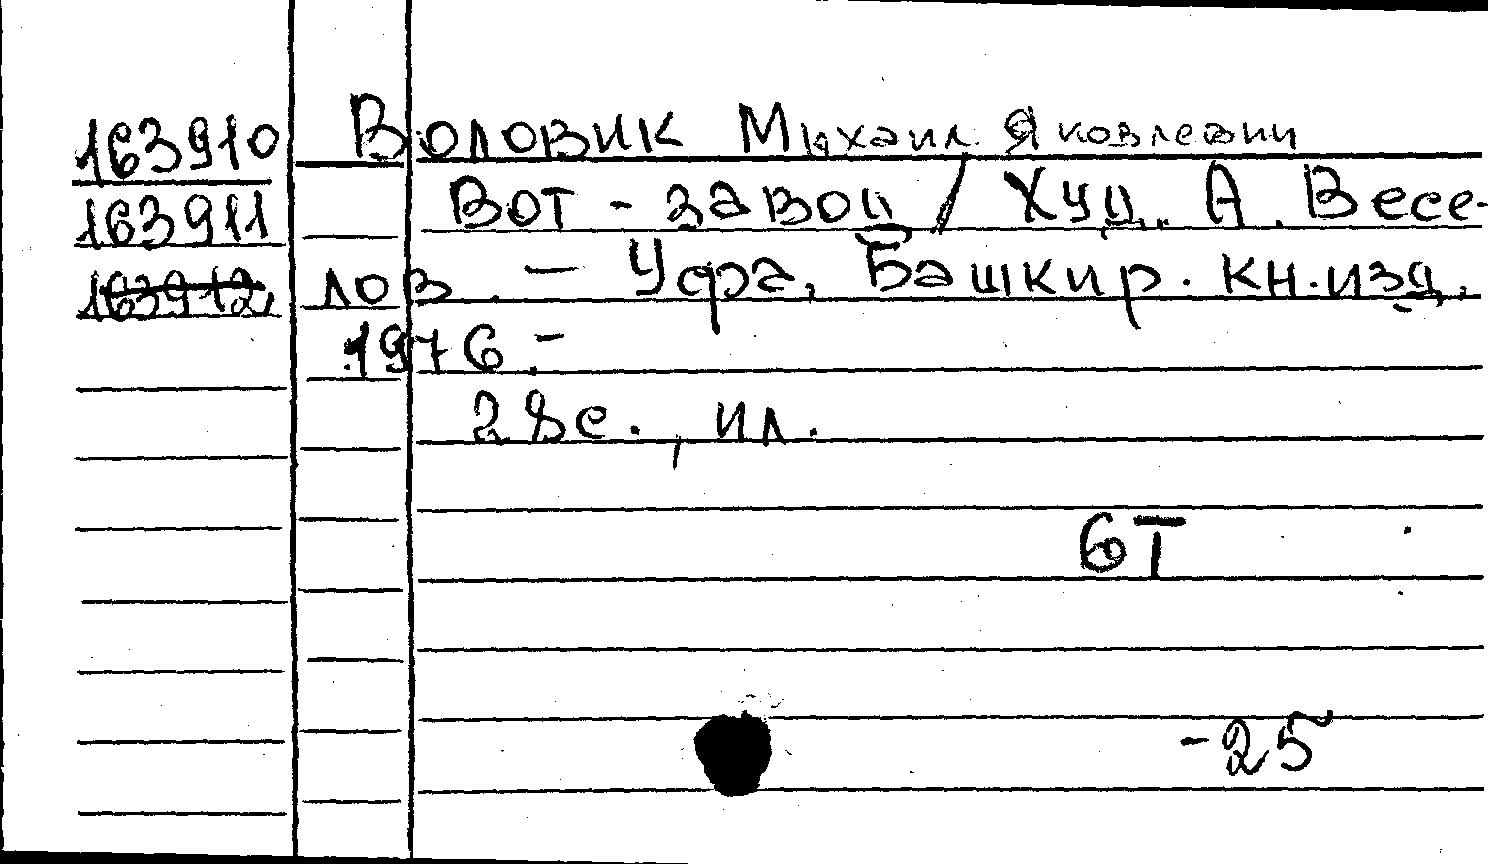 163910 Воловик Михаил Яковлевич
163911 Вот - завод / Худ. А. Весе-
163912, лов. — Уфа, Башкир. кн.изд,
1976. -
28с. , ил.
6Т
-25